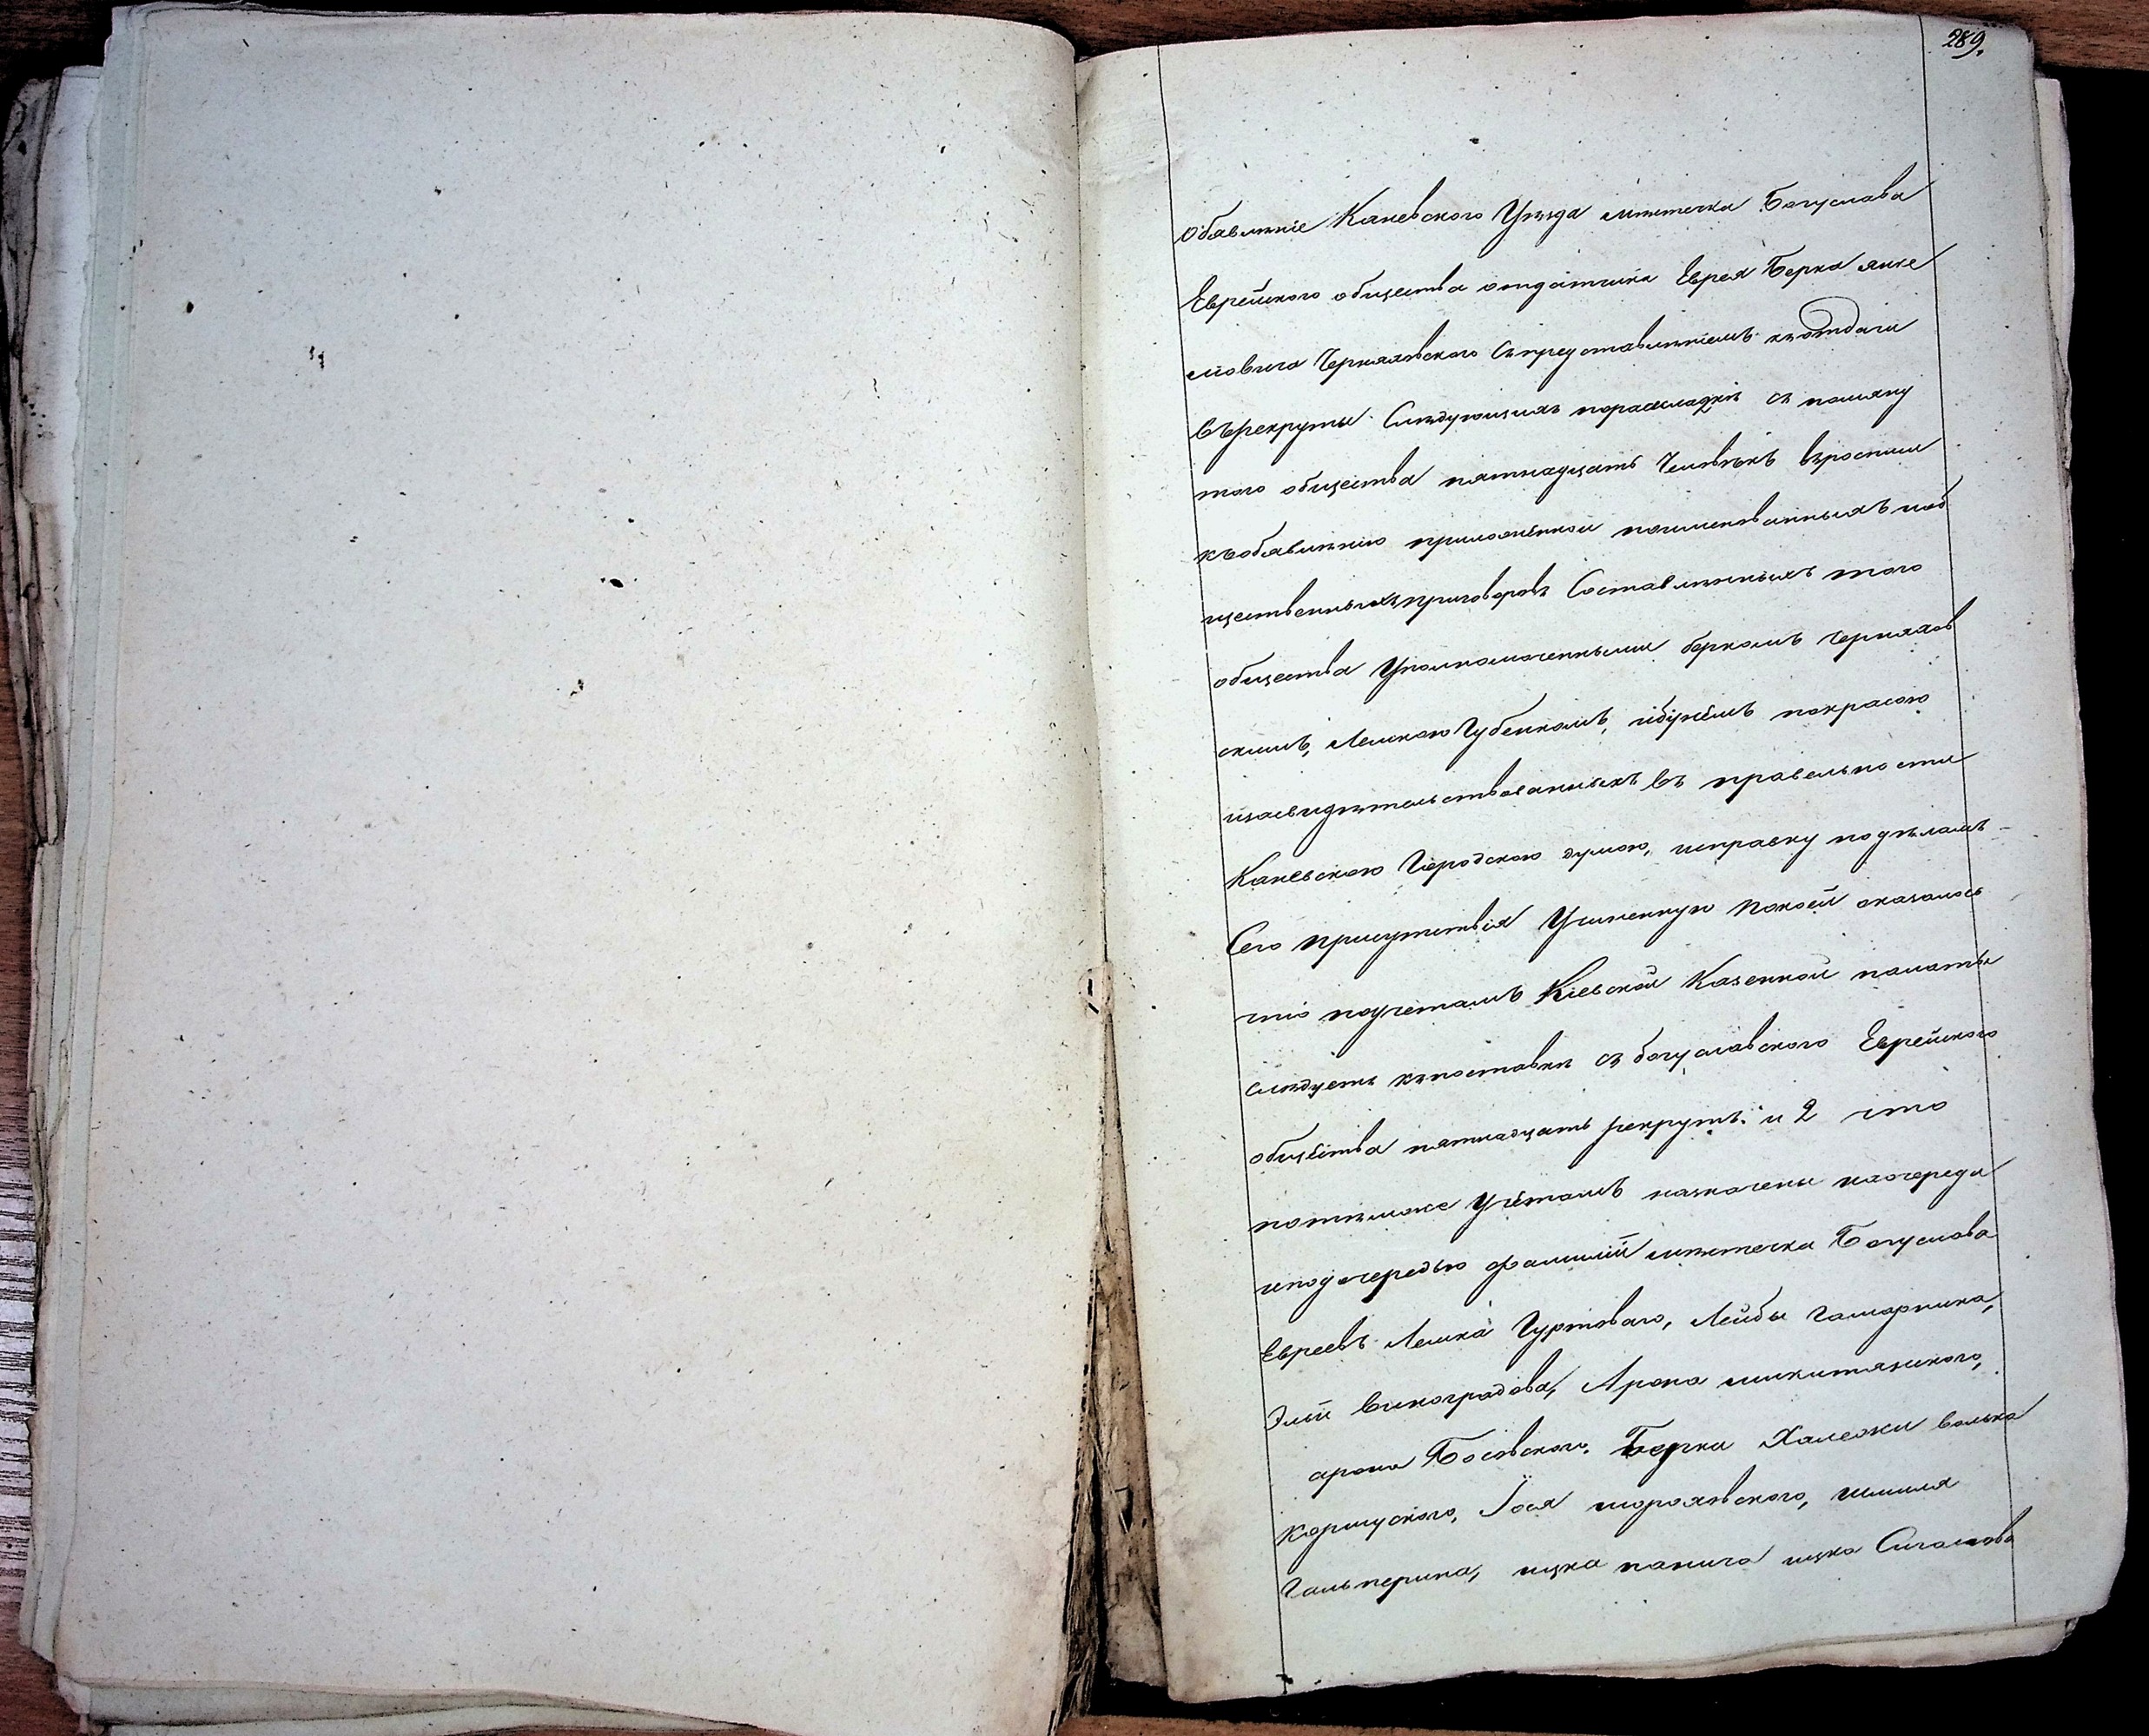 289.
Обявленіе Каневского Уезда местечка Богуслава
Еврейского общества отдатчика Еврея Берка янке
лювича Черняховского съпредставленіемъ къотдачи
въ рекруты Следующихъ пораскладке съ помяну
того общества пятнадцать Человекъ взрослии
къобявленію приложенной поименованныхъ иоб
щественныхъ приговоровъ Составленныхъ того
общества Уполномоченными беркомъ черняхов
скимъ, Лейкою Губенкомъ, покрасою
изасвидетельствованныхъ въ правельности
Каневскою Городскою думою, исправку поделамъ
Сего присутствія Учиненную Покоей оказалось
что поучетамъ Кіевской Казенной палаты
следуетъ къпоставки съ богуславского Еврейского
общества пятнадцать рекрутъ. и 2 что
потемже Учётамъ назначены наочереди
иподочередью фамилій местечка Богуслава
Евреевъ Лейка Гуртоваго, Лейбы гамарника,
Элій виноградова, Арона микитянского,
арона Босовского. Берки Халемки волька
Корсунского, Іося мороховского, шмиля
Гальперина, ицка панича ицка Сигалова